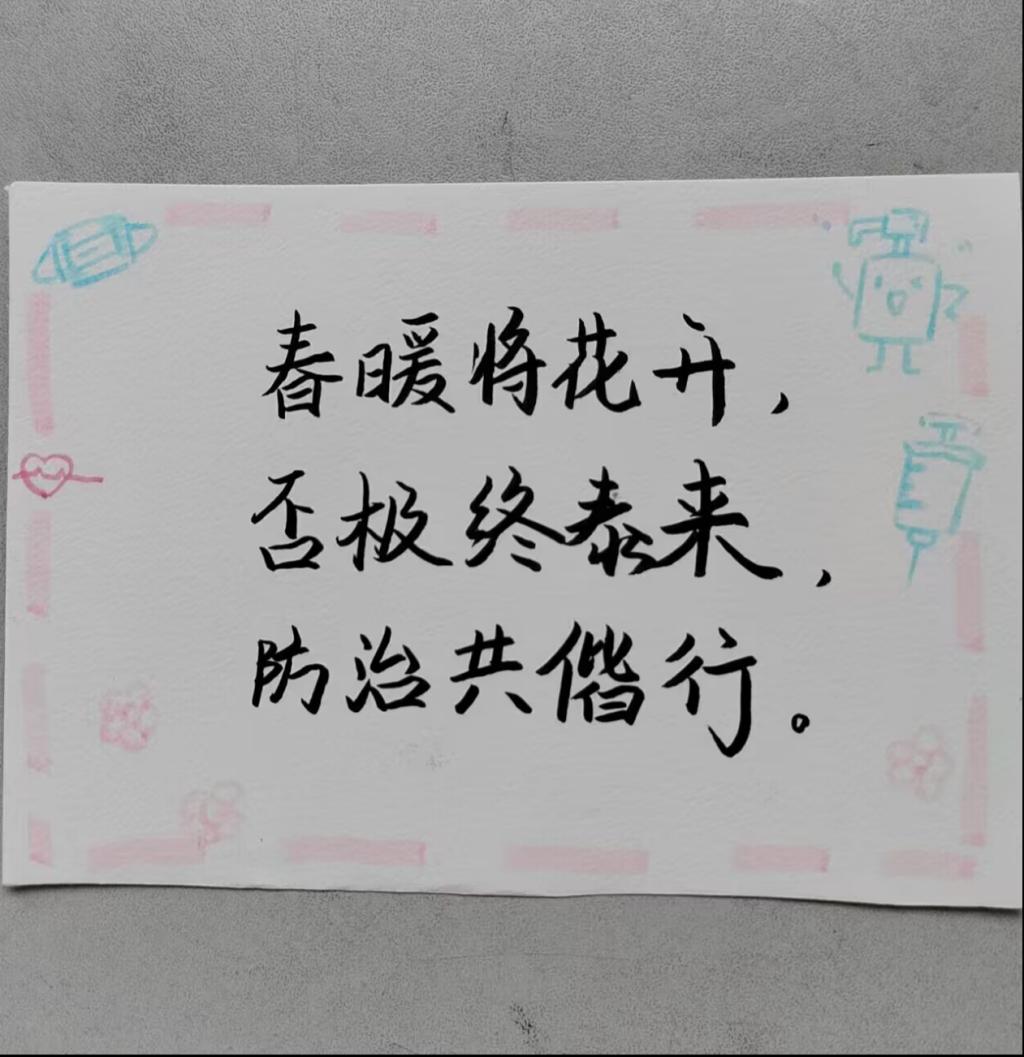 春暖将花开，
否极终泰来，
防治共偕行。